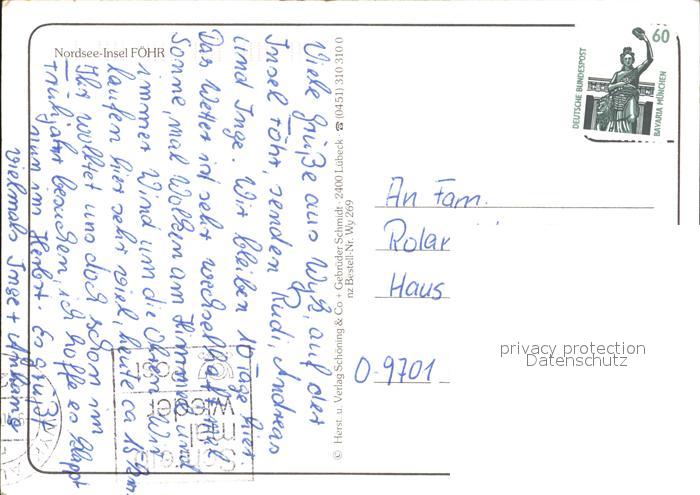 Nordsee-Insel FÖHR
Viele Grüße aus Wyk, auf der
Insel Föhr, senden Rudi, Andreas
und Inge. Wir bleiben 10 Tage hier.
Das Wetter ist sehr wechselhaft, mal
Sonne, mal Wolken am Himmel und
immer Wind um die Ohren. Wir
laufen hier sehr viel, heute ca 15 km.
Ihr wolltet uns doch schon im
Frühjahr besuchen, ich hoffe es klappt
nun im Herbst. Es grüßt
vielmals Inge + Anhang
© Herst. u. Verlag Schöning & Co + Gebrüder Schmidt · 2400 Lübeck · ☎ (0451) 310 310 0
nz Bestell-Nr. Wy 269
60
DEUTSCHE BUNDESPOST
BAVARIA MÜNCHEN
An Fam.
Rolar
Haus
O-9701
privacy protection
Datenschutz
Schreib
mal
wieder
Post